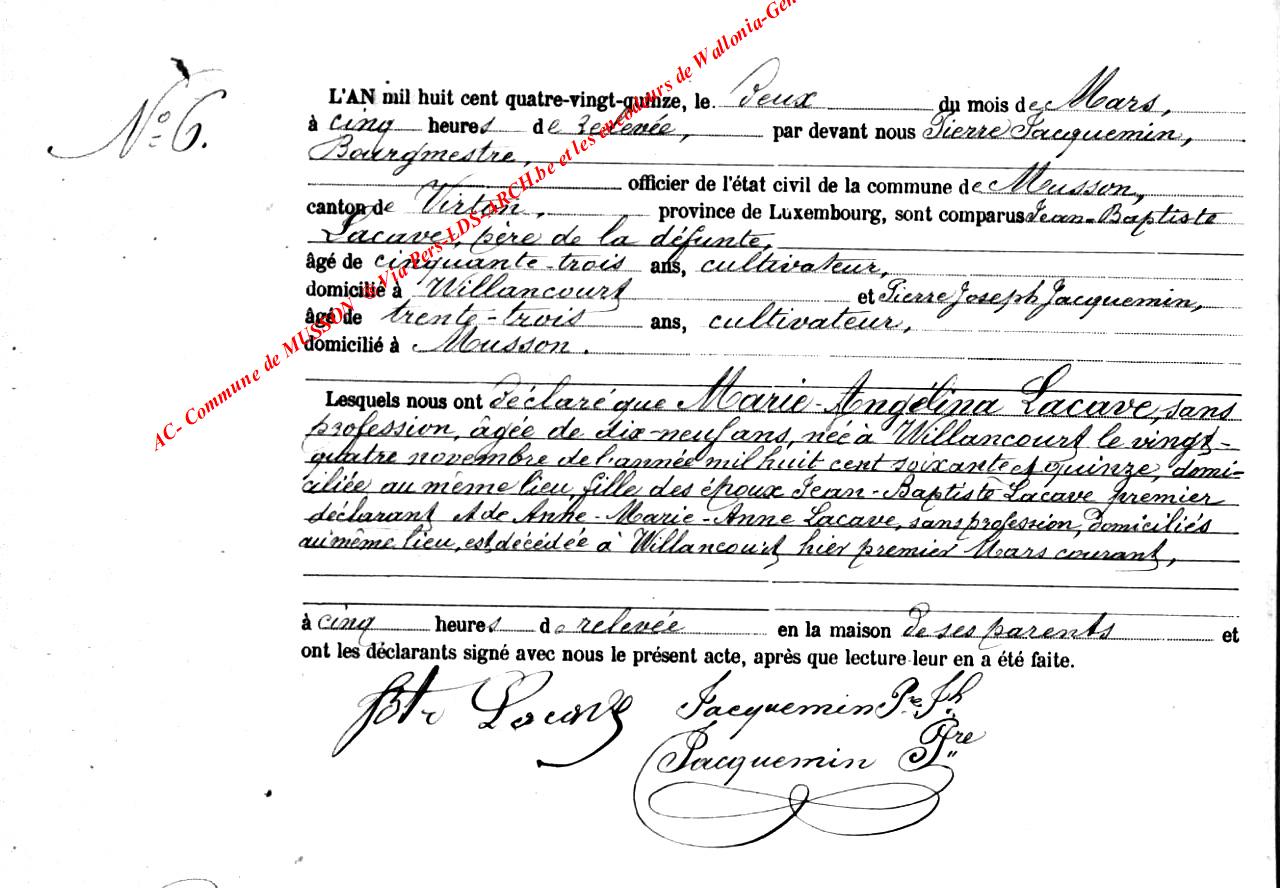 N° 6.
L'AN mil huit cent quatre-vingt-quinze, le Deux du mois de Mars,
à cinq heures de relevée, par devant nous Pierre Jacquemin,
Bourgmestre,
officier de l'état civil de la commune de Musson,
canton de Virton, province de Luxembourg, sont comparus Jean-Baptiste
Lacave, père de la défunte,
âgé de cinquante-trois ans, cultivateur,
domicilié à Willancourt et Pierre Joseph Jacquemin,
âgé de trente-trois ans, cultivateur,
domicilié à Musson.
Lesquels nous ont déclaré que Marie-Angélina Lacave, sans
profession, âgée de dix-neuf ans, née à Willancourt le vingt-
quatre novembre de l'année mil huit cent soixante et quinze, domi-
ciliée au même lieu, fille des époux Jean-Baptiste Lacave premier
déclarant et de Anne-Marie-Anne Lacave, sans profession, domiciliés
au même lieu, est décédée à Willancourt hier premier Mars courant,
à cinq heures de relevée en la maison de ses parents et
ont les déclarants signé avec nous le présent acte, après que lecture leur en a été faite.
Bte Lacave Jacquemin Pre Jh
Jacquemin Pre
AC- Commune de MUSSON Via Pers-LDS-ARCH.be et les encodeurs de Wallonia-Gen